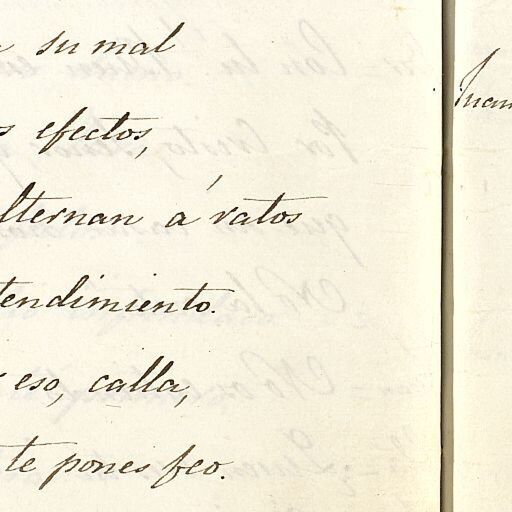 su mal
efectos,
alternan á ratos
tendimiento.
eso, calla,
te pones feo.
Juan